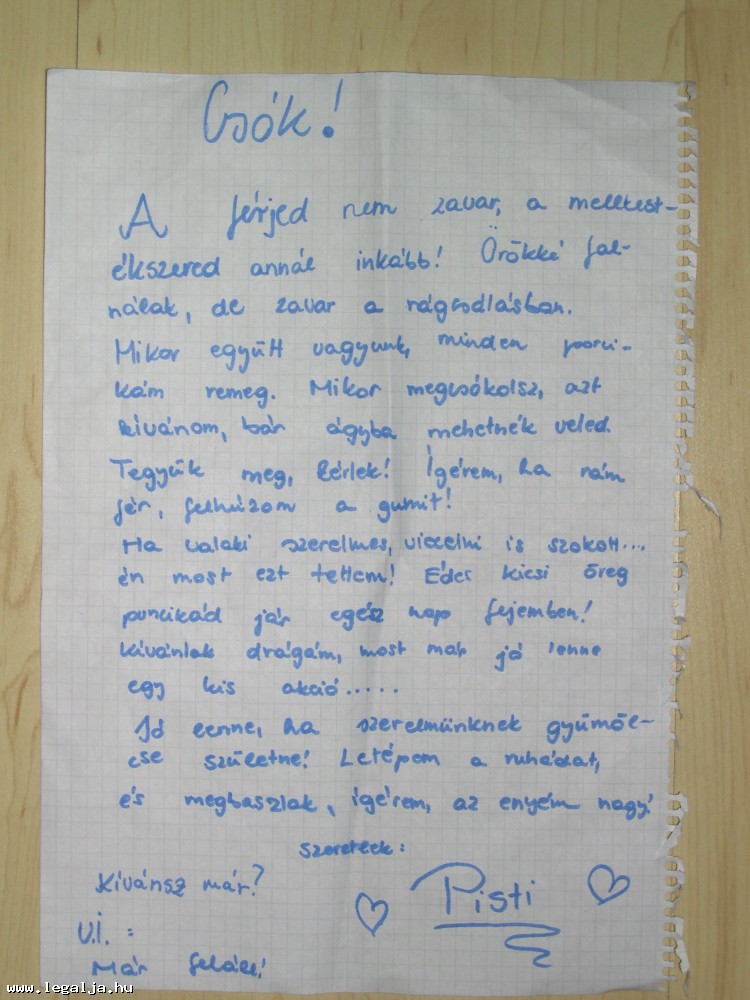 Csók!
A férjed nem zavar, a melltest-
ékszered annál inkább! Örökké fal-
nálak, de zavar a rágcsálásban.
Mikor együtt vagyunk, minden porci-
kám remeg. Mikor megcsókolsz, azt
kívánom, bár ágyba mehetnék veled.
Tegyük meg, kérlek! Ígérem, ha rám
fér, felhúzom a gumit!
Ha valaki szerelmes, viccelni is szokott...
én most ezt tettem! Édes kicsi öreg
puncikád jár egész nap fejemben!
Kívánlak drágám, most már jó lenne
egy kis akció.....
Jó lenne, ha szerelmünknek gyümöl-
cse születne! Letépem a ruhádat,
és megbaszlak, ígérem, az enyém nagy!
Szeretlek:
Kívánsz már?
Pisti
U.i. :
Már feláll!
www.legalja.hu